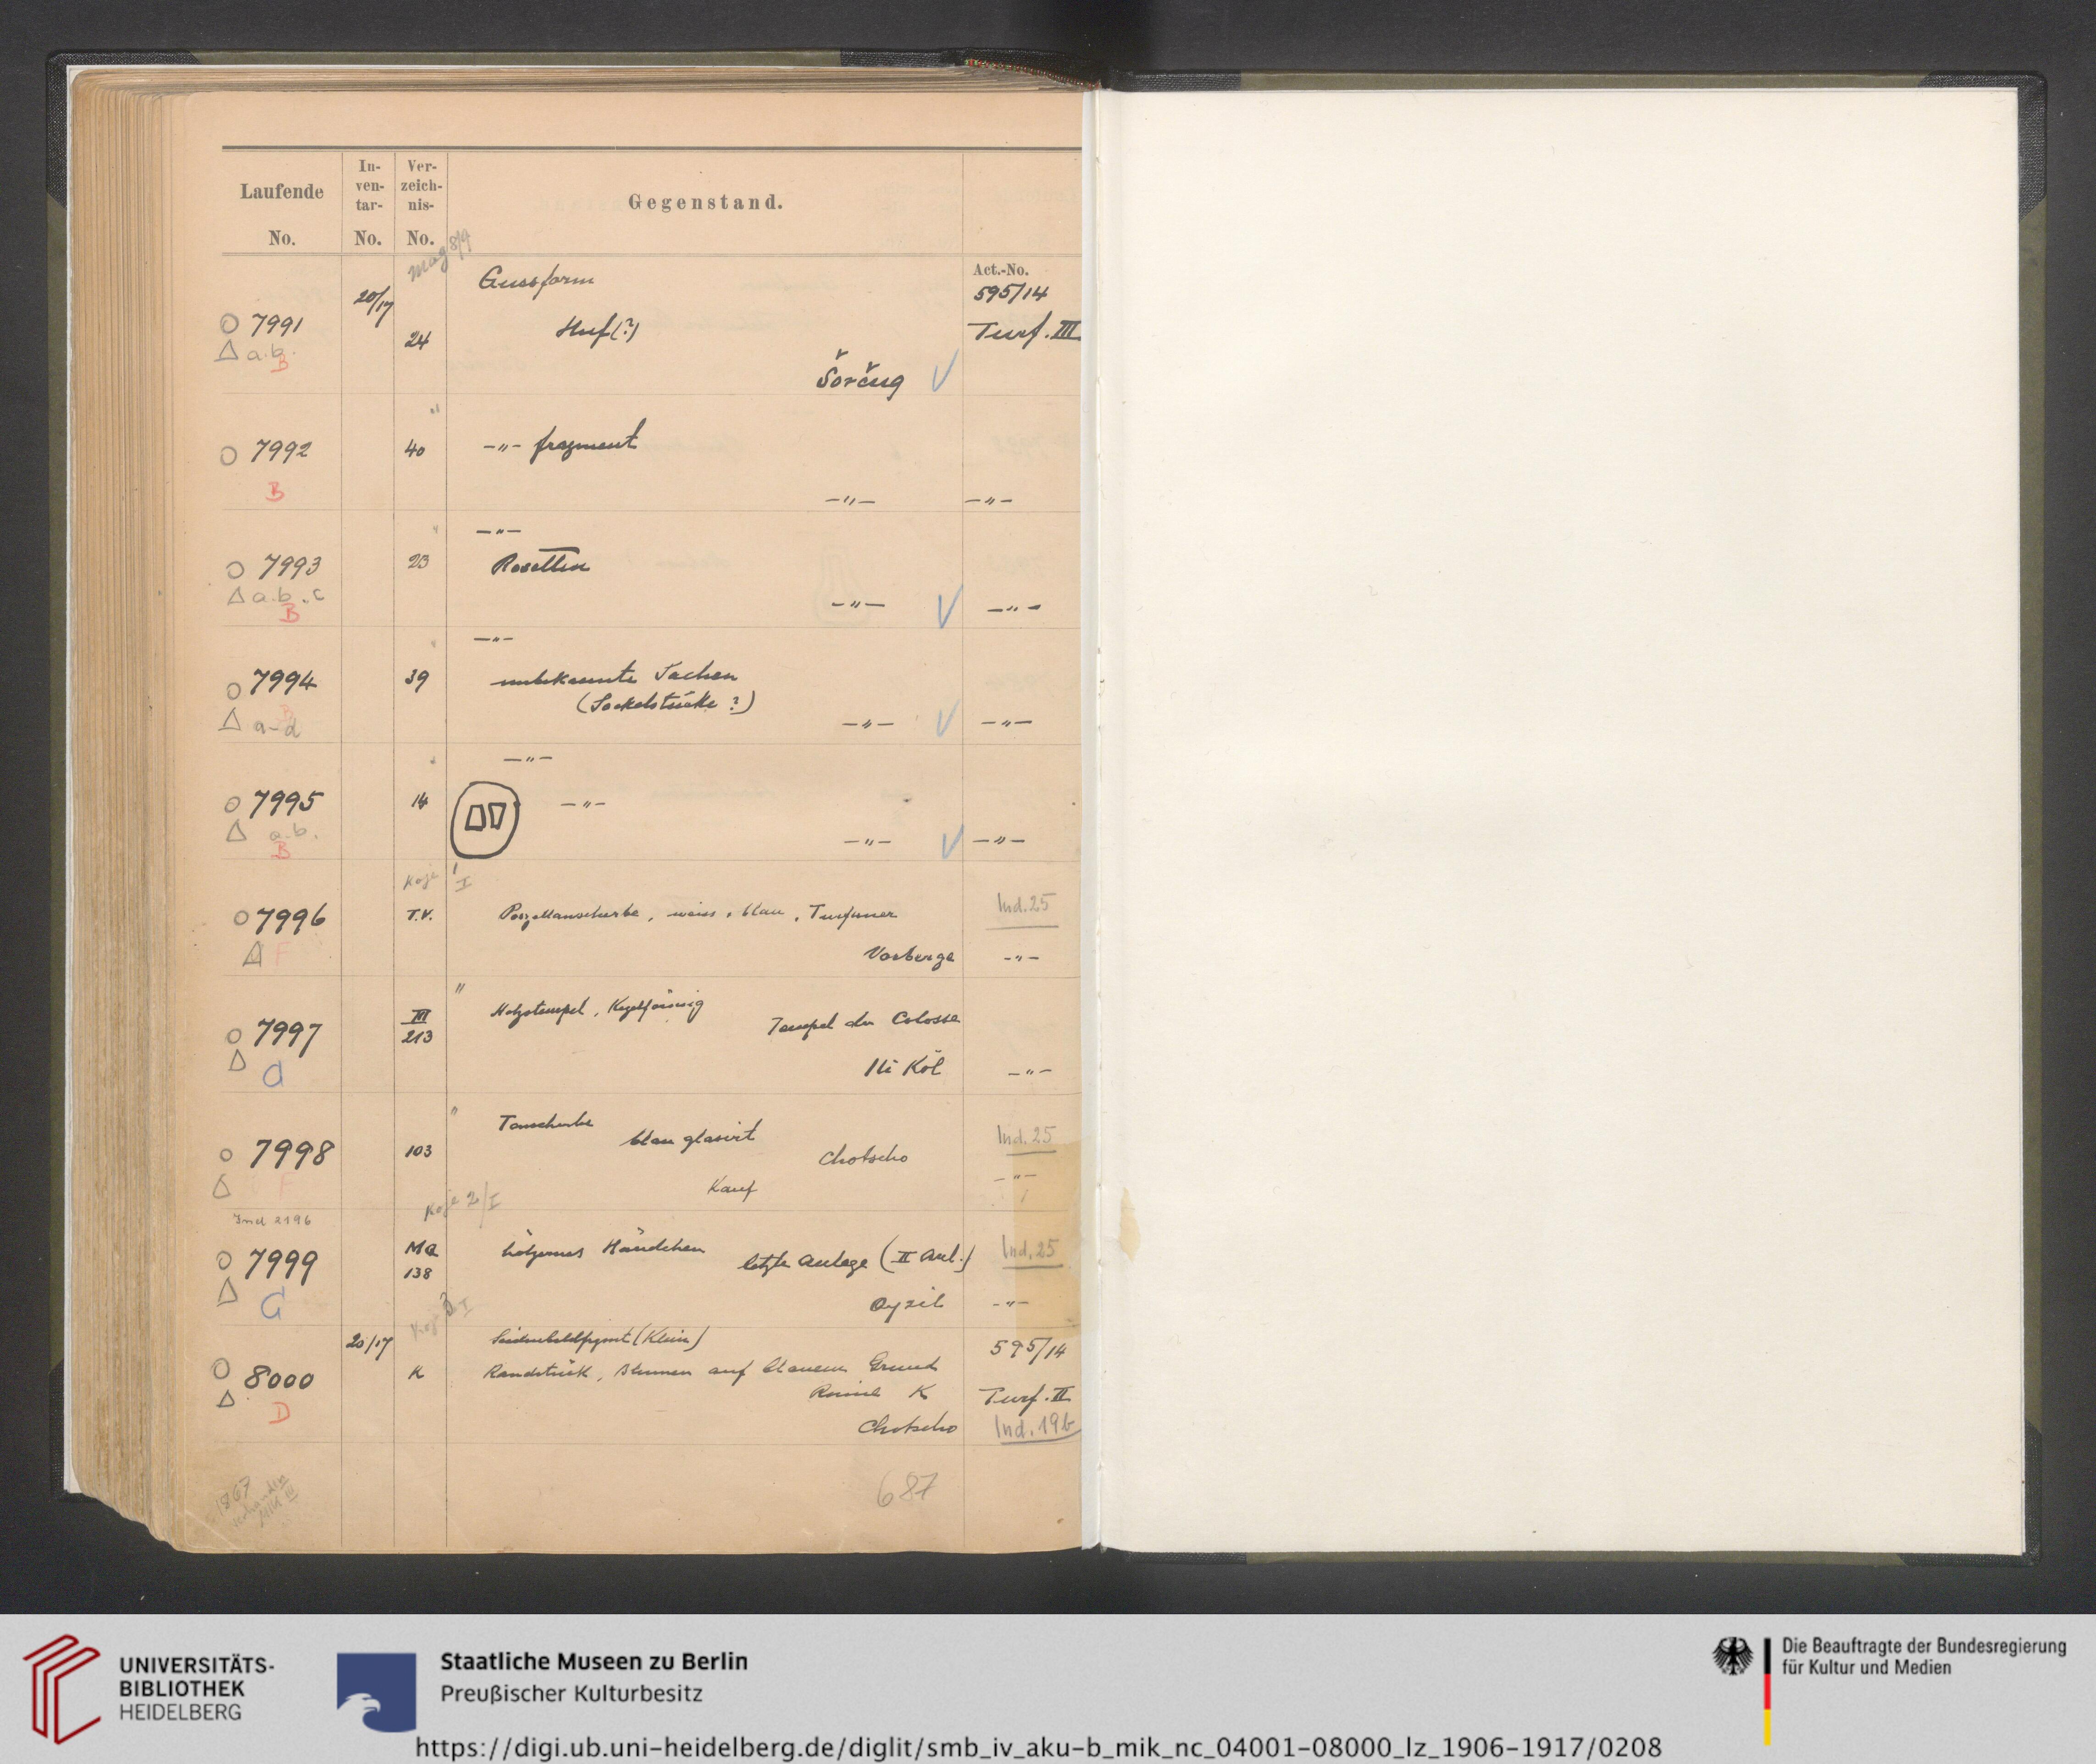 Laufende
No.
In-
ven-
tar-
No.
Ver-
zeich-
nis-
No.
Gegenstand.
Mag 8/9
Act.-No.
20/17
Gussform
595/14
7991
24
Huf (?)
Turf. III
a.b.
B
Šorčug
"
7992
40
-"- fragment
B
-"- -"-
-"-
7993
23
Rosetten
a.b.c
B
-"- -"-
-"-
7994
39
unbekannte Sachen
(Sockelstücke ?)
B
a-d
-"- -"-
-"-
7995
14
-"-
a.b.
B
-"- -"-
Koje 1/I
7996
T.V.
Porzellanscherbe, weiss, blau, Turfaner
Ind. 25
F
Vorberge
-"-
"
7997
III
213
Holzstempel, Kegelförmig
Tempel der Colosse
Ili Köl
-"-
G
"
7998
103
Tonscherbe
blau glasirt
Chotscho
Kauf
Ind. 25
-"-
F
Koje 2/I
Ind 2196
7999
Ma
138
hölzernes Händchen
letzte Anlage (II Anl.)
Qyzil
Ind. 25
-"-
G
Koje 3/I
20/17
8000
K
Seidenbildfrgmt (Klein)
Randstück, Blumen auf blauem Grund
Ruine K
Chotscho
595/14
Turf. II
Ind. 19b
D
1867
vorhanden
687
UNIVERSITÄTS-
BIBLIOTHEK
HEIDELBERG
Staatliche Museen zu Berlin
Preußischer Kulturbesitz
Die Beauftragte der Bundesregierung
für Kultur und Medien
https://digi.ub.uni-heidelberg.de/diglit/smb_iv_aku-b_mik_nc_04001-08000_lz_1906-1917/0208